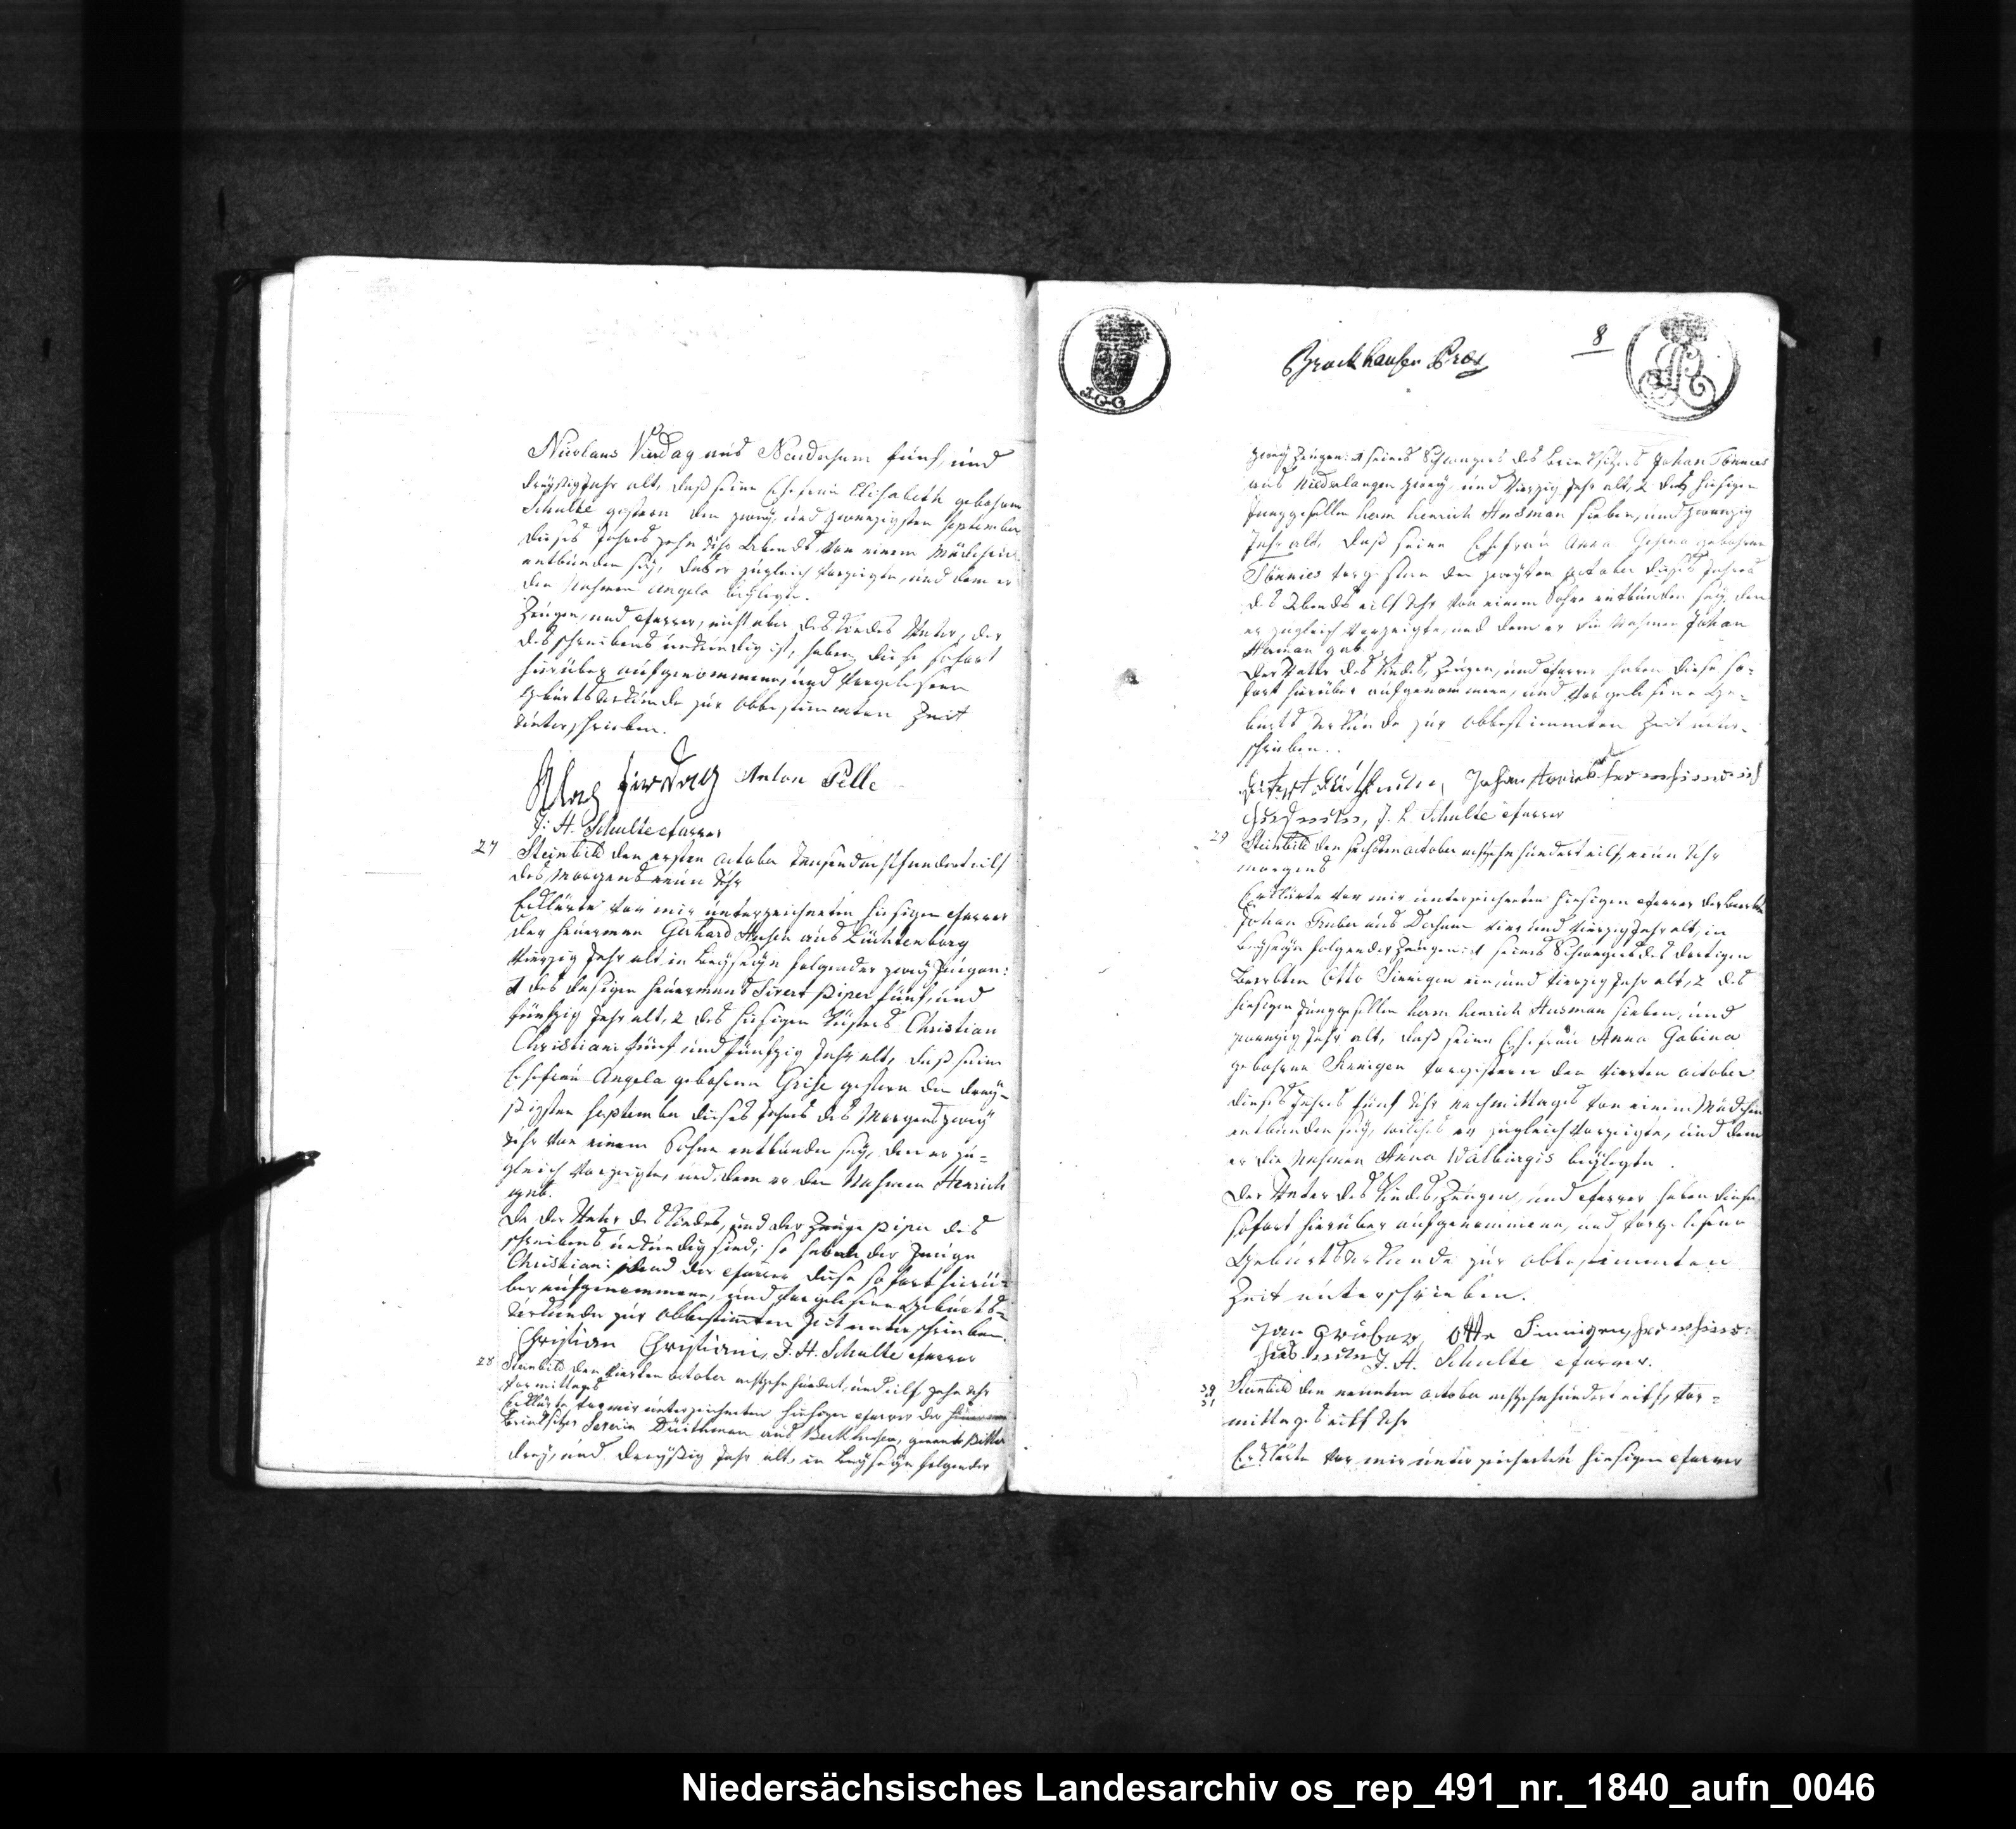 Nicolaus Vierdag aus Neudersum fünf, und
dreyßig Jahr alt, daß seine Ehefrau Elisabeth gebohrne
Schulte gestern den zwey, und zwanzigsten September
dieses Jahres zehn Uhr Abends von einem Mädchen
entbunden sey, das er zugleich vorzeigte, und dem er
den Nahmen Angela beylegte.
Zeugen, und Pfarrer, nicht aber des Kindes Vater, der
des schreibens unkundig ist, haben diese sofort
hierüber aufgenommene, und vorgelesene
Geburts Urkunde zur obbestimmten Zeit
unterschrieben.
Anton Pelle
J: H. Schulte Pfarrer
27 Steinbild den ersten October Tausendachthunderteilf
des Morgens neun Uhr
Erklärte vor mir unterzeichneten hiesigen Pfarrer
der Heuermann Gerhard aus Lüchtenborg
vierzig Jahr alt in Beyseyn folgender zwey Zeugen:
1 des hiesigen Heuermans Sivert Piper fünf, und
fünfzig Jahr alt, 2 des hiesigen Küsters Christian
Christiani fünf und fünfzig Jahr alt, daß seine
Ehefrau Angela gebohrne Grise gestern den drey-
ßigsten September dieses Jahres des Morgens zwey
Uhr von einem Sohne entbunden sey, den er zu-
gleich vorzeigte, und dem er den Nahmen Henrich
gab.
Da der Vater des Kindes, und der Zeuge Piper des
schreibens unkundig sind, so haben der Zeuge
Christiani und der Pfarrer diese sofort hierü-
ber aufgenommene, und vorgelesene Geburts-
Urkunde zur obbestimten Zeit unterschrieben.
Christian Christiani, J. H. Schulte Pfarrer
28 Steinbild den vierten October achtzehn hundert, und eilf zehn Uhr
Vormittags
Erklärte vor mir unterzeichneten hiesigen Pfarrer der
Brinksitzer Düithman aus genant
drey, und dreyßig Jahr alt, in Beyseyn folgender
Brockhausen
8
J.G.G
zwey Zeugen: 1 seines Schwagers des Brinksitzers Johan Tönnies
aus Niederlangen zwey, und vierzig Jahr alt, 2 des hiesigen
Junggesellen Herm Henrich Husman sieben, und zwanzig
Jahr alt, daß seine Ehefrau Anna Gesina gebohrne
Tönnies vorgestern den zweyten October dieses Jahres
des Abends eilf Uhr von einem Sohne entbunden sey, den
er zugleich vorzeigte, und dem er die Nahmen Johan
Herman gab.
Der Vater des Kindes, Zeugen, und Pfarrer haben diese so-
fort hierüber aufgenommene, und vorgelesene Ge-
burts Urkunde zur obbestimmten Zeit unter-
schrieben.
J. H. Schulte Pfarrer
29 Steinbild den sechsten October achtzehn hundert eilf, neun Uhr
morgens
Erklärte vor mir unterzeichneten hiesigen Pfarrer der
Johan Gruber aus Dersum vier und vierzig Jahr alt, in
Beyseyn folgender Zeugen: 1 seines Schwagers des dortigen
Beerbten Otto Sinnigen ein, und vierzig Jahr alt, 2 des
hiesigen Junggesellen Herm Henrich Husman sieben, und
zwanzig Jahr alt, daß seine Ehefrau Anna Gabina
gebohrne Sinnigen vorgestern den vierten October
dieses Jahres fünf Uhr nachmittages von einem Mädchen
entbunden sey, welches er zugleich vorzeigte, und dem
er die Nahmen Anna Walburgis beylegte.
Der Vater des Kindes, Zeugen, und Pfarrer haben diese
sofort hierüber aufgenommene, und vorgelesene
Geburts Urkunde zur obbestimmten
Zeit unterschrieben.
Jan Gruber, Otto Sinnigen,
J. H. Schulte Pfarrer.
Steinbild den neunten October achtzehnhundert eilf, vor-
mittages eilf Uhr
Erklärte vor mir unterzeichneten hiesigen Pfarrer
Niedersächsisches Landesarchiv os_rep_491_nr._1840_aufn_0046